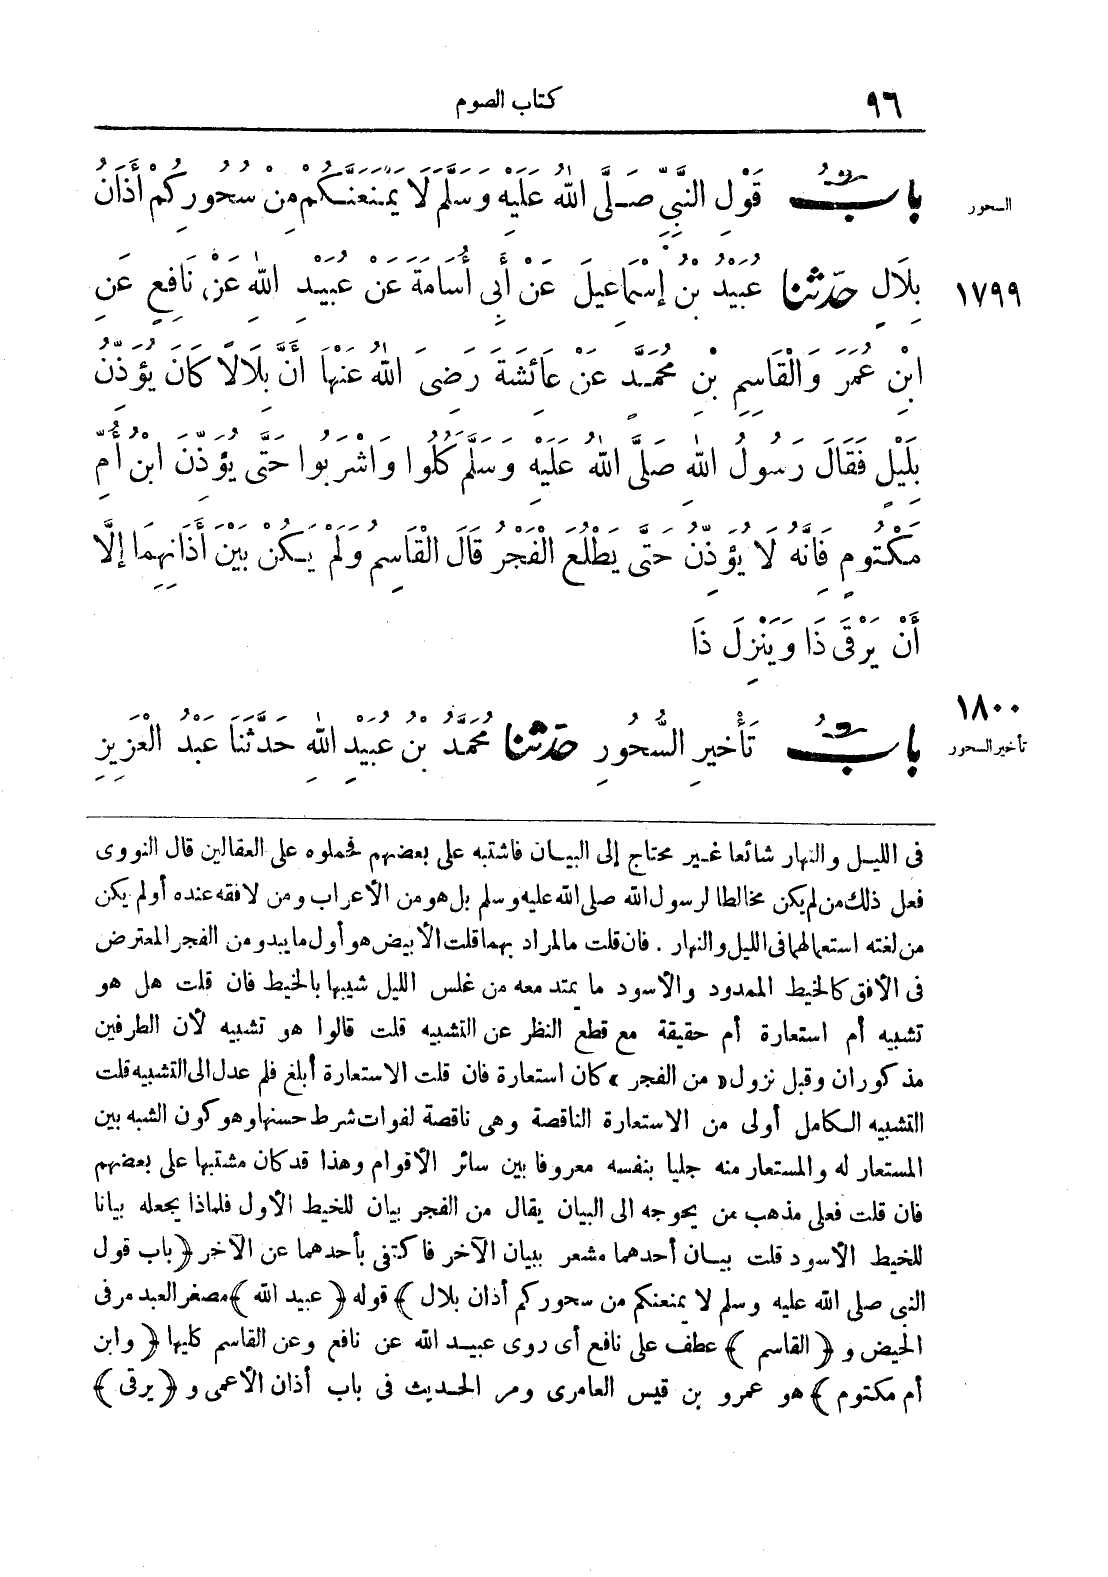 ٩٦
كتاب الصوم
بابٌ قَوْلِ النَّبِيِّ صَلَّى اللهُ عَلَيْهِ وَسَلَّمَ لَا يَمْنَعَنَّكُمْ مِنْ سُحُورِكُمْ أَذَانُ
السحور
بِلَالٍ حَدَّثَنَا عُبَيْدُ بْنُ إِسْمَاعِيلَ عَنْ أَبِي أُسَامَةَ عَنْ عُبَيْدِ اللهِ عَنْ نَافِعٍ عَنِ
١٧٩٩
ابْنِ عُمَرَ وَالْقَاسِمِ بْنِ مُحَمَّدٍ عَنْ عَائِشَةَ رَضِيَ اللهُ عَنْهَا أَنَّ بِلَالًا كَانَ يُؤَذِّنُ
بِلَيْلٍ فَقَالَ رَسُولُ اللهِ صَلَّى اللهُ عَلَيْهِ وَسَلَّمَ كُلُوا وَاشْرَبُوا حَتَّى يُؤَذِّنَ ابْنُ أُمِّ
مَكْتُومٍ فَإِنَّهُ لَا يُؤَذِّنُ حَتَّى يَطْلُعَ الْفَجْرُ قَالَ الْقَاسِمُ وَلَمْ يَكُنْ بَيْنَ أَذَانِهِمَا إِلَّا
أَنْ يَرْقَى ذَا وَيَنْزِلَ ذَا
١٨٠٠
بابٌ تَأْخِيرِ السُّحُورِ حَدَّثَنَا مُحَمَّدُ بْنُ عُبَيْدِ اللهِ حَدَّثَنَا عَبْدُ الْعَزِيزِ
تأخير السحور
فى الليل والنهار شائعا غير محتاج إلى البيان فاشتبه على بعضهم فحملوه على العقالين قال النووى
فعل ذلك من لم يكن مخالطا لرسول الله صلى الله عليه وسلم بل هو من الأعراب ومن لا فقه عنده أو لم يكن
من لغته استعمالهما فى الليل والنهار . فان قلت ما المراد بهما قلت الأبيض هو أول ما يبدو من الفجر المعترض
فى الأفق كالخيط الممدود والأسود ما يمتد معه من غلس الليل شبيها بالخيط فان قلت هل هو
تشبيه أم استعارة أم حقيقة مع قطع النظر عن التشبيه قلت قالوا هو تشبيه لأن الطرفين
مذكوران وقبل نزول «من الفجر» كان استعارة فان قلت الاستعارة أبلغ فلم عدل الى التشبيه قلت
التشبيه الكامل أولى من الاستعارة الناقصة وهى ناقصة لفوات شرط حسنها وهو كون الشبه بين
المستعار له والمستعار منه جليا بنفسه معروفا بين سائر الأقوام وهذا قد كان مشتبها على بعضهم
فان قلت فعلى مذهب من يحوجه الى البيان يقال من الفجر بيان للخيط الأول فلماذا يجعله بيانا
للخيط الأسود قلت بيان أحدهما مشعر ببيان الآخر فاكتفى بأحدهما عن الآخر ﴿باب قول
النبى صلى الله عليه وسلم لا يمنعنكم من سحوركم أذان بلال﴾ قوله ﴿عبيد الله﴾ مصغر العبد مر فى
الحيض و ﴿القاسم﴾ عطف على نافع أى روى عبيد الله عن نافع وعن القاسم كليها ﴿وابن
أم مكتوم﴾ هو عمرو بن قيس العامرى ومر الحديث فى باب أذان الأعمى و ﴿يرقى﴾